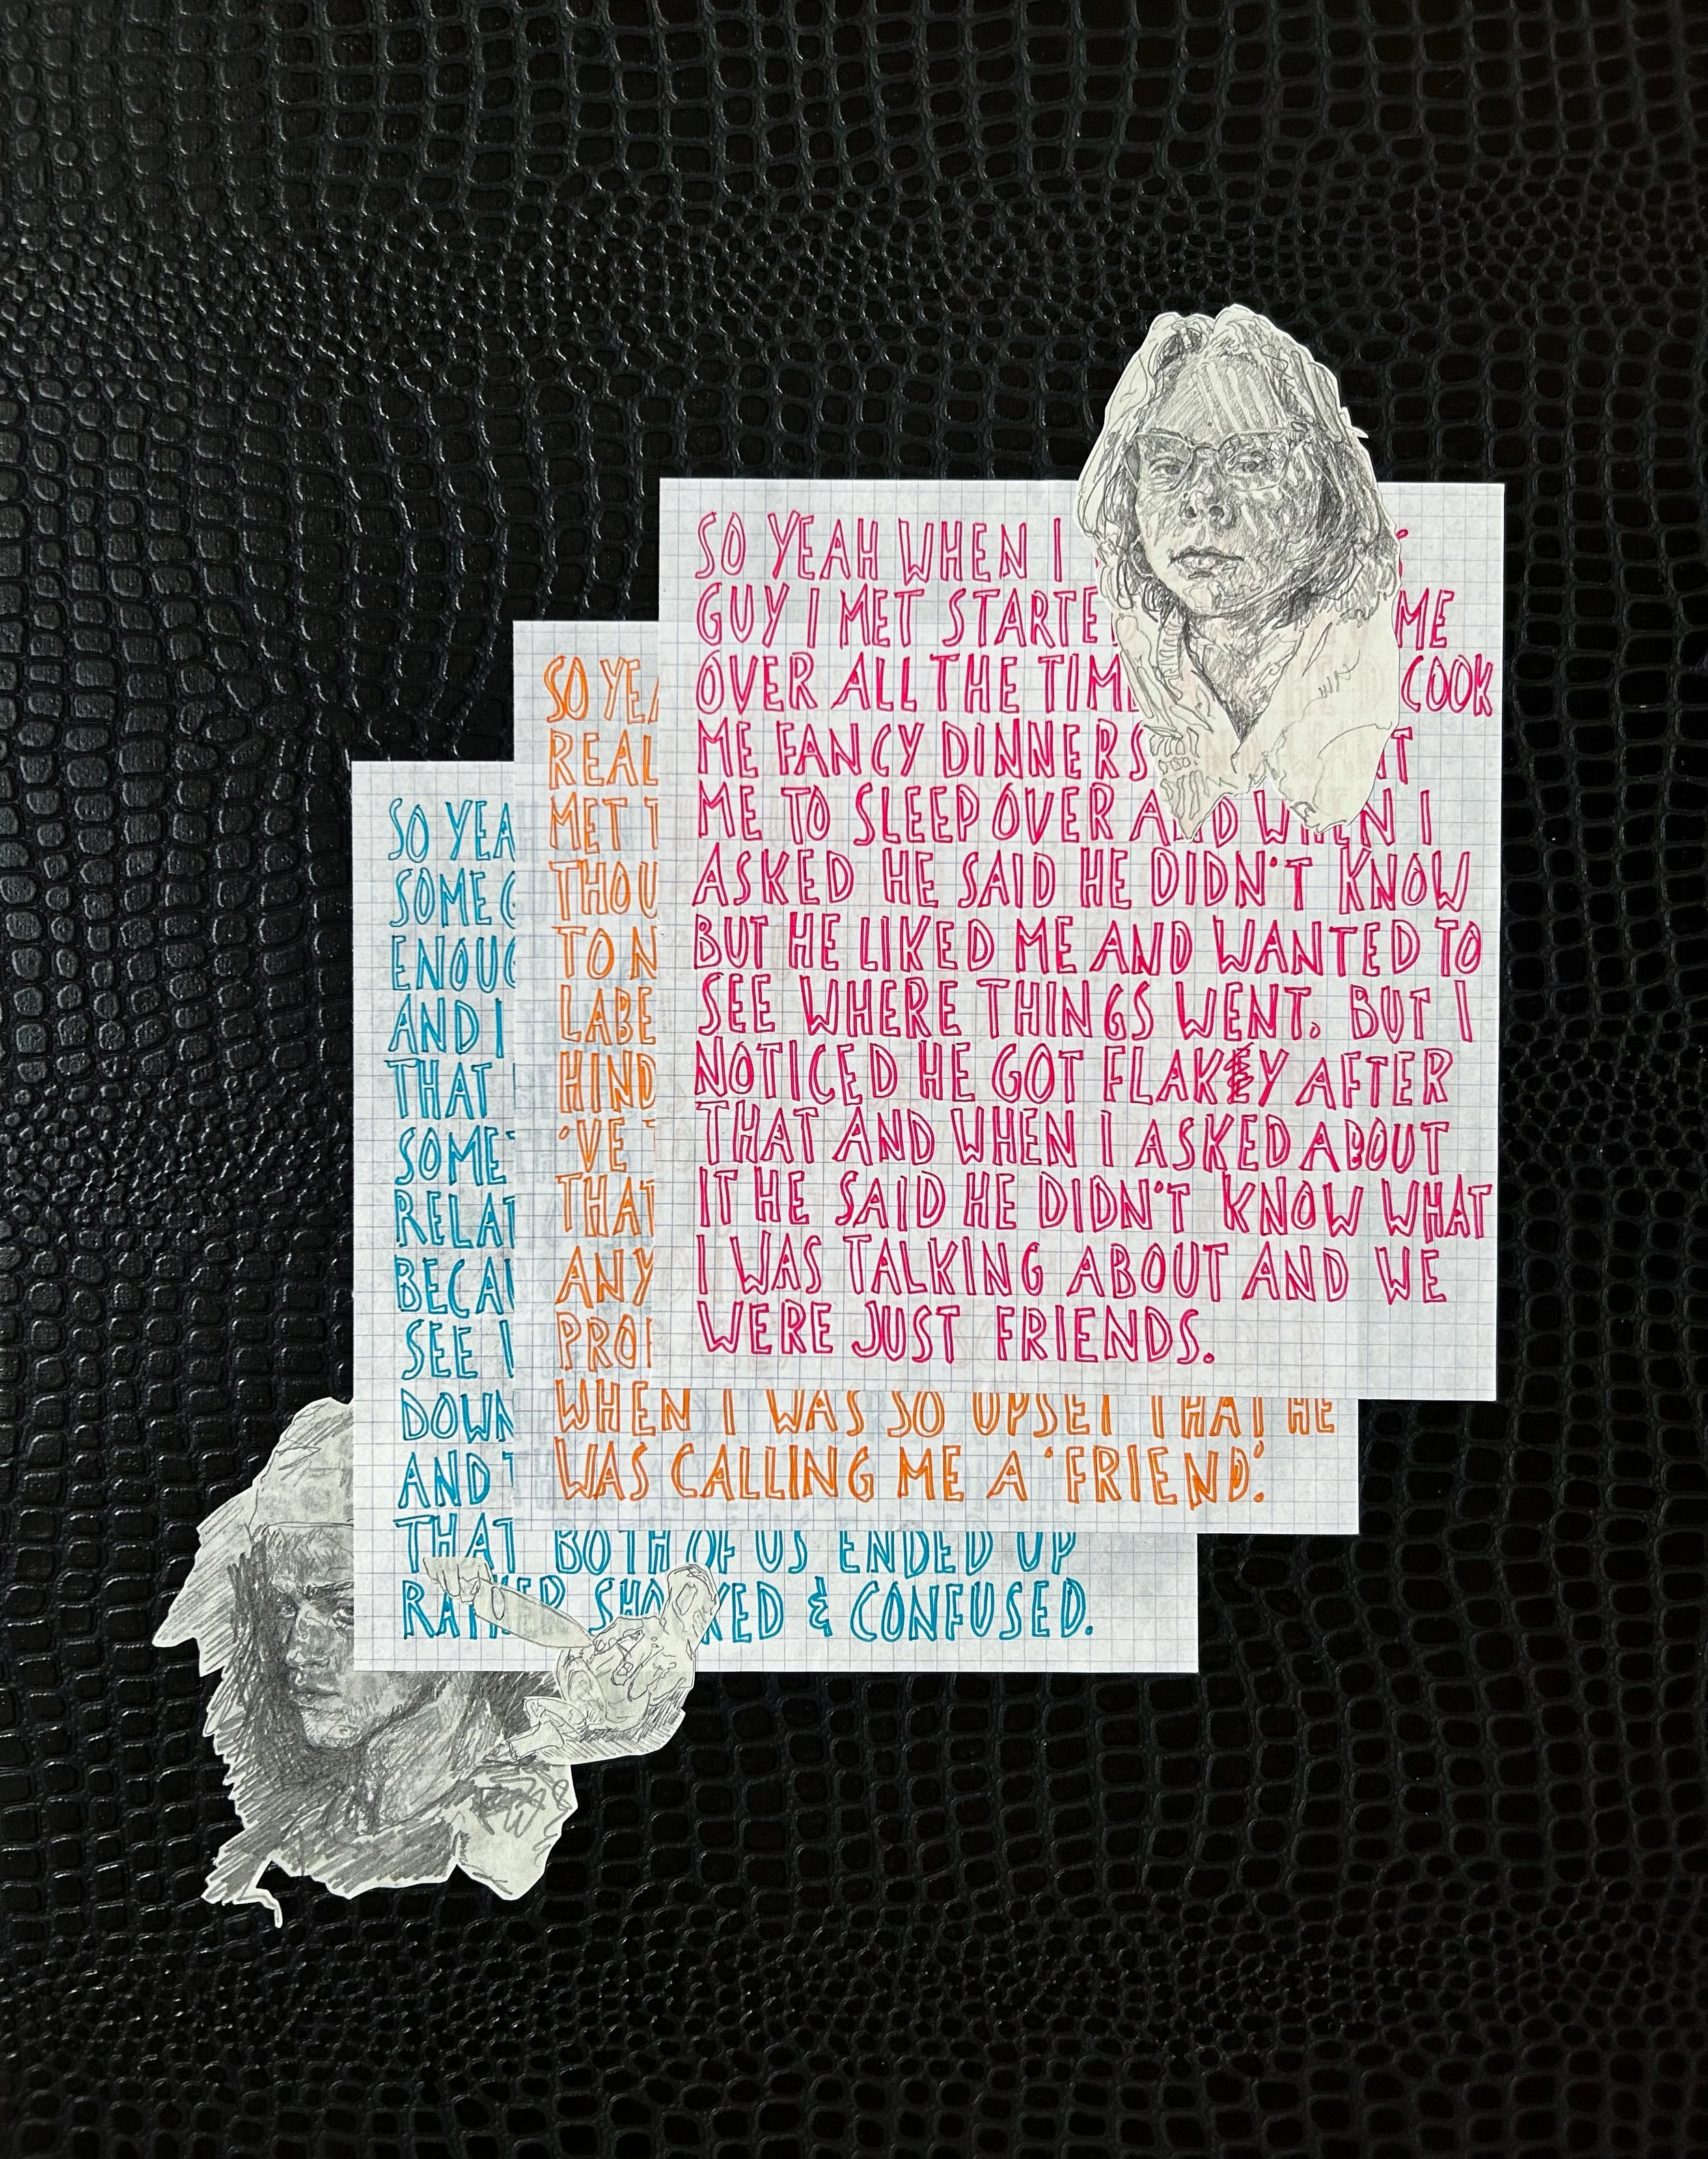 SO YEAH WHEN I
GUY I MET STARTE ME
OVER ALL THE TIM COOK
ME FANCY DINNERS
ME TO SLEEP OVER AND WHEN I
ASKED HE SAID HE DIDN'T KNOW
BUT HE LIKED ME AND WANTED TO
SEE WHERE THINGS WENT. BUT I
NOTICED HE GOT FLAKEY AFTER
THAT AND WHEN I ASKED ABOUT
IT HE SAID HE DIDN'T KNOW WHAT
I WAS TALKING ABOUT AND WE
WERE JUST FRIENDS.
SO YEA
REAL
MET T
THOU
TO N
LABE
HIND
'VE T
THAT
ANY
PROF
WHEN I WAS SO UPSET THAT HE
WAS CALLING ME A 'FRIEND'.
SO YEA
SOME G
ENOUG
AND I
THAT
SOMET
RELAT
BECAU
SEE
DOWN
AND T
THAT BOTH OF US ENDED UP
RATHER SHOCKED & CONFUSED.